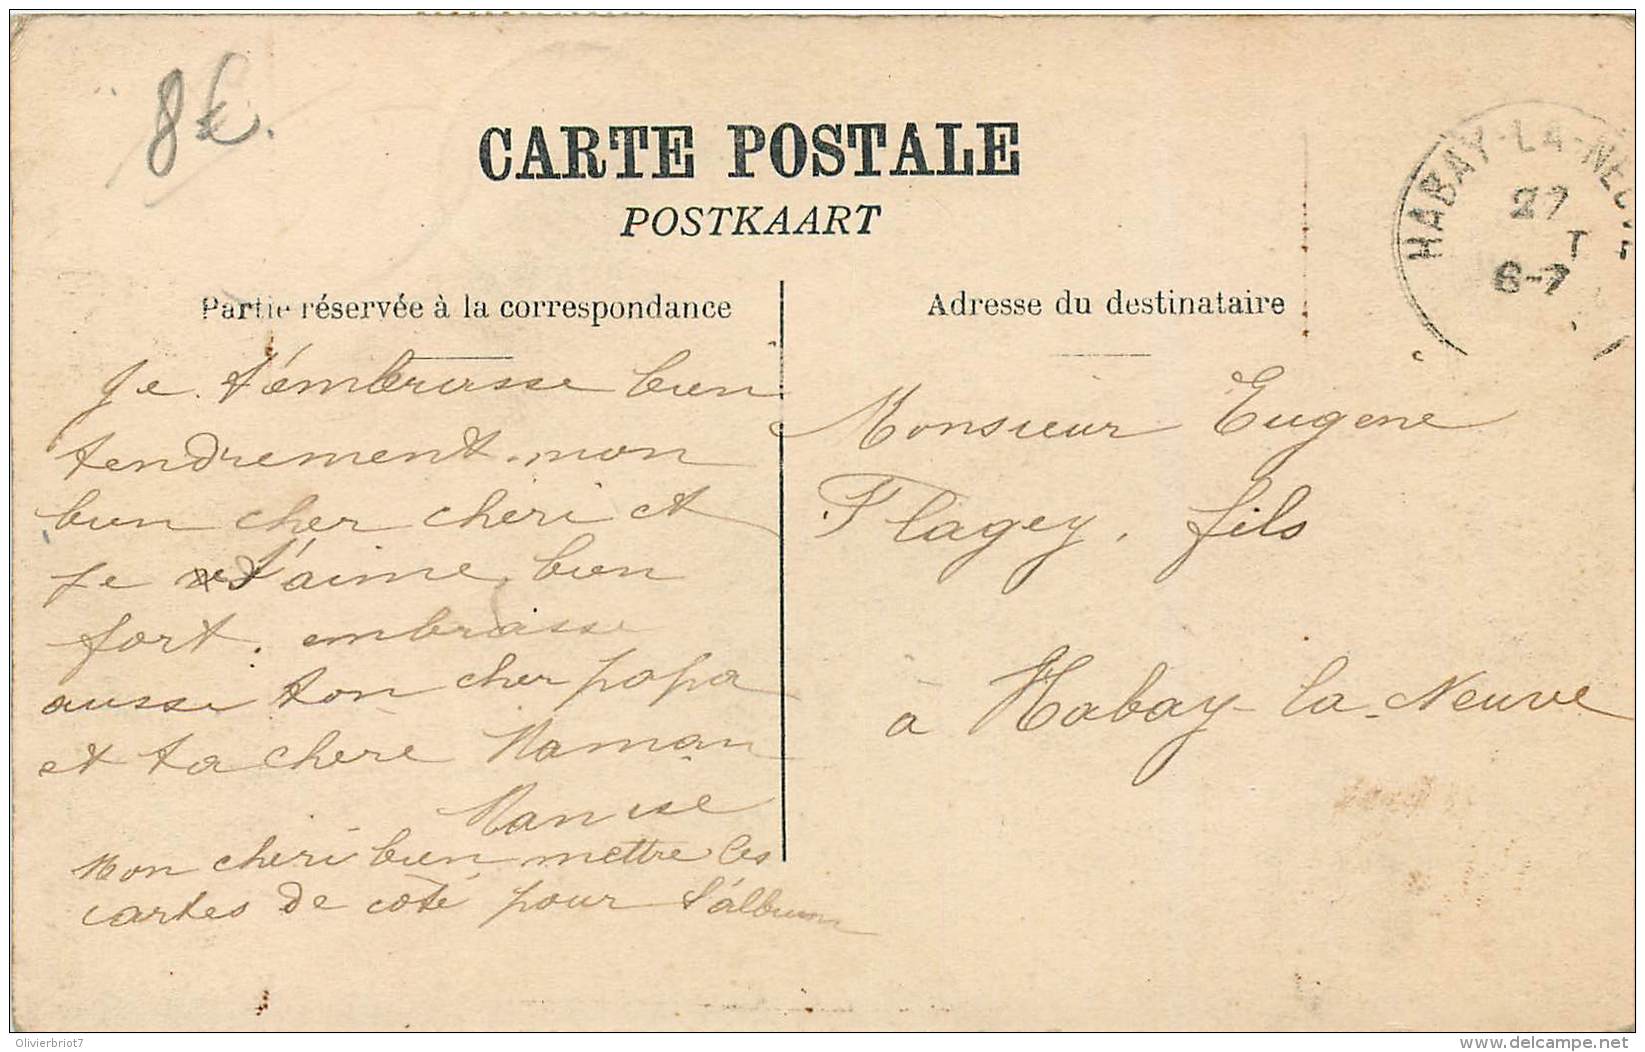 8€.
CARTE POSTALE
POSTKAART
Partie réservée à la correspondance
Je t'embrasse bien
tendrement mon
bien cher chéri et
je t'aime bien
fort. embrasse
aussi ton cher papa
et ta chère Maman
Mon chéri bien mettre les
cartes de coté pour l'álbum
Adresse du destinataire
Monsieur Eugene
Flagey, fils
à Habay-la-Neuve
HABAY-LA-NEUVE
27
T
6-7
Olivierbriot7
delcampe.net